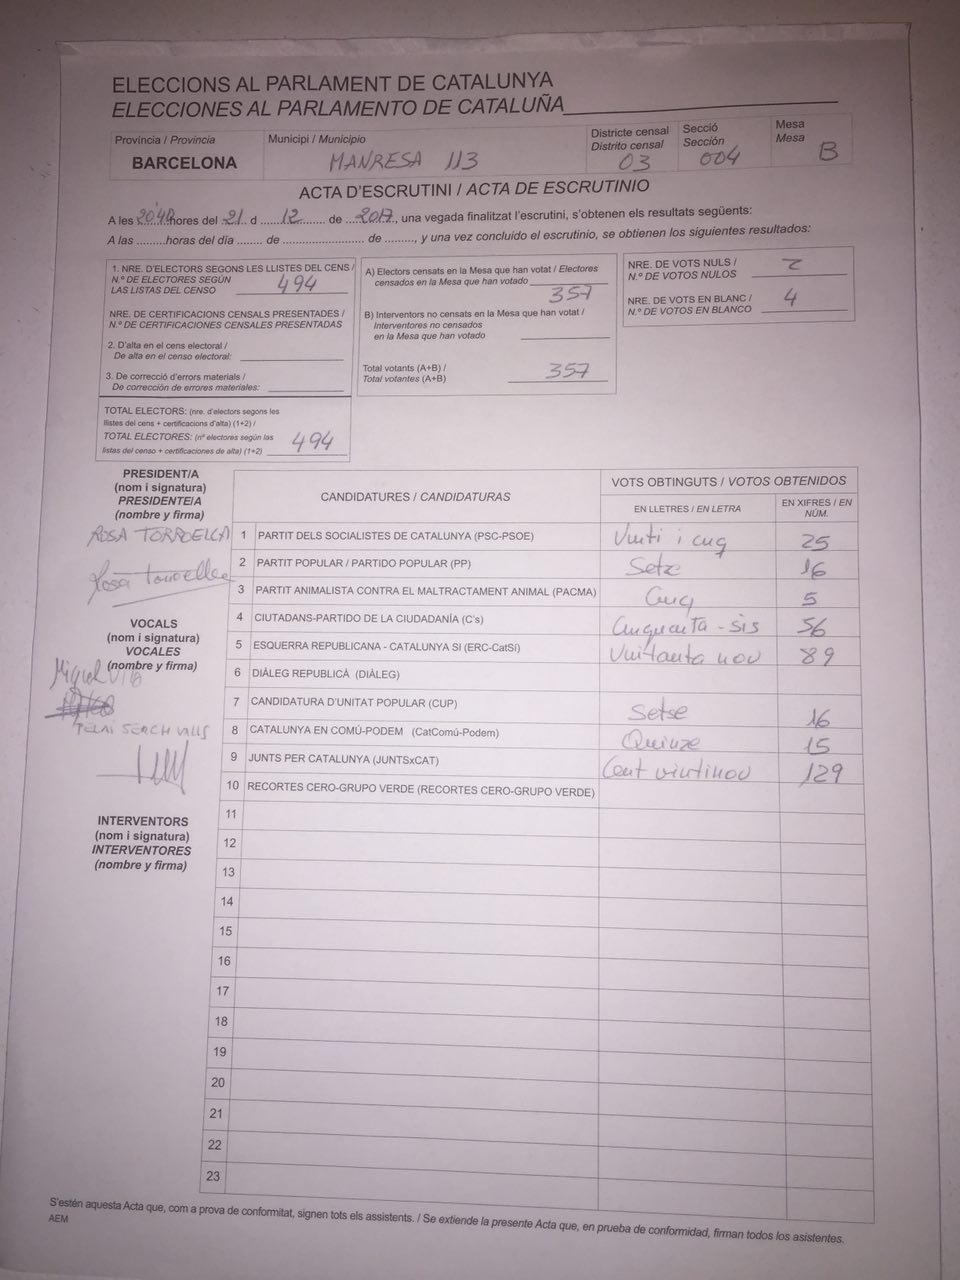 ELECCIONS AL PARLAMENT DE CATALUNYA
ELECCIONES AL PARLAMENTO DE CATALUÑA
Província / Provincia
BARCELONA
Municipi / Municipio
MANRESA 113
Districte censal
Distrito censal
03
Secció
Sección
004
Mesa
Mesa
B
ACTA D'ESCRUTINI / ACTA DE ESCRUTINIO
A les 20:48 hores del 21 d 12 de 2017, una vegada finalitzat l'escrutini, s'obtenen els resultats següents:
A las .........horas del día ........ de ......................... de ........., y una vez concluido el escrutinio, se obtienen los siguientes resultados:
1. NRE. D'ELECTORS SEGONS LES LLISTES DEL CENS /
N.º DE ELECTORES SEGÚN
LAS LISTAS DEL CENSO 494
NRE. DE CERTIFICACIONS CENSALS PRESENTADES /
N.º DE CERTIFICACIONES CENSALES PRESENTADAS
2. D'alta en el cens electoral /
De alta en el censo electoral:
3. De correcció d'errors materials /
De corrección de errores materiales:
TOTAL ELECTORS: (nre. d'electors segons les
llistes del cens + certificacions d'alta) (1+2) /
TOTAL ELECTORES: (nº electores según las
listas del censo + certificaciones de alta) (1+2) 494
A) Electors censats en la Mesa que han votat / Electores
censados en la Mesa que han votado
357
B) Interventors no censats en la Mesa que han votat /
Interventores no censados
en la Mesa que han votado
Total votants (A+B) /
Total votantes (A+B) 357
NRE. DE VOTS NULS /
N.º DE VOTOS NULOS 2
NRE. DE VOTS EN BLANC /
N.º DE VOTOS EN BLANCO 4
PRESIDENT/A
(nom i signatura)
PRESIDENTE/A
(nombre y firma)
ROSA TORROELLA
Rosa Torroella
VOCALS
(nom i signatura)
VOCALES
(nombre y firma)
Miquel Vila
SERCH VALLS
INTERVENTORS
(nom i signatura)
INTERVENTORES
(nombre y firma)
CANDIDATURES / CANDIDATURAS
VOTS OBTINGUTS / VOTOS OBTENIDOS
EN LLETRES / EN LETRA
EN XIFRES / EN
NÚM.
1 PARTIT DELS SOCIALISTES DE CATALUNYA (PSC-PSOE) Vinti i cinq 25
2 PARTIT POPULAR / PARTIDO POPULAR (PP) Setze 16
3 PARTIT ANIMALISTA CONTRA EL MALTRACTAMENT ANIMAL (PACMA) Cinq 5
4 CIUTADANS-PARTIDO DE LA CIUDADANÍA (C's) Cinquanta-sis 56
5 ESQUERRA REPUBLICANA - CATALUNYA SI (ERC-CatSí) Vuitanta nou 89
6 DIÀLEG REPUBLICÀ (DIÀLEG)
7 CANDIDATURA D'UNITAT POPULAR (CUP) Setse 16
8 CATALUNYA EN COMÚ-PODEM (CatComú-Podem) Quinze 15
9 JUNTS PER CATALUNYA (JUNTSxCAT) Cent vintinou 129
10 RECORTES CERO-GRUPO VERDE (RECORTES CERO-GRUPO VERDE)
11
12
13
14
15
16
17
18
19
20
21
22
23
S'estén aquesta Acta que, com a prova de conformitat, signen tots els assistents. / Se extiende la presente Acta que, en prueba de conformidad, firman todos los asistentes.
AEM